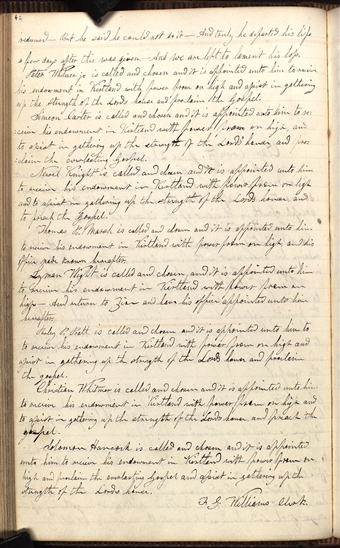 42
returned — but he said he could not do it — And truly he departed his life
a few days after this was given — And we are left to lament his loss.
Peter Whitmer jr is called and chosen and it is appointed unto him to receive
his endowment in Kirtland with power from on high and assist in gathering
up the strength of the Lords house and proclaim the Gospel.
Simeon Carter is called and chosen and it is appointed unto him to re-
ceive his endowment in Kirtland with power from on high, and
to assist in gathering up the strength of the Lords house, and pro-
claim the everlasting Gospel.
Newel Knight is called and chosen and it is appointed unto him
to receive his endowment in Kirtland with power from on high
and to assist in gathering up the strength of the Lords house, and
to preach the Gospel.
Thomas B. Marsh is called and chosen and it is appointed unto him
to receive his endowment in Kirtland with power from on high and his
office made known hereafter.
Lyman Wight is called and chosen, and it is appointed unto him
to receive his endowment in Kirtland with power from on
high — And return to Zion and have his office appointed unto him
hereafter.
P. Pratt is called and chosen and it is appointed unto him to
to receive his endowment in Kirtland with power from on high and
assist in gathering up the strength of the Lords house and proclaim
the gospel.
Christian Whitmer is called and chosen and it is appointed unto him
to receive his endowment in Kirtland with power from on high and
to assist in gathering up the strength of the Lords house, and preach the
gospel
Solomon Hancock is called and chosen and it is appointed
unto him to receive his endowment in Kirtland with power from on
high and proclaim the everlasting Gospel and assist in gathering up the
strength of the Lords house.
F. G. Williams Clerk.